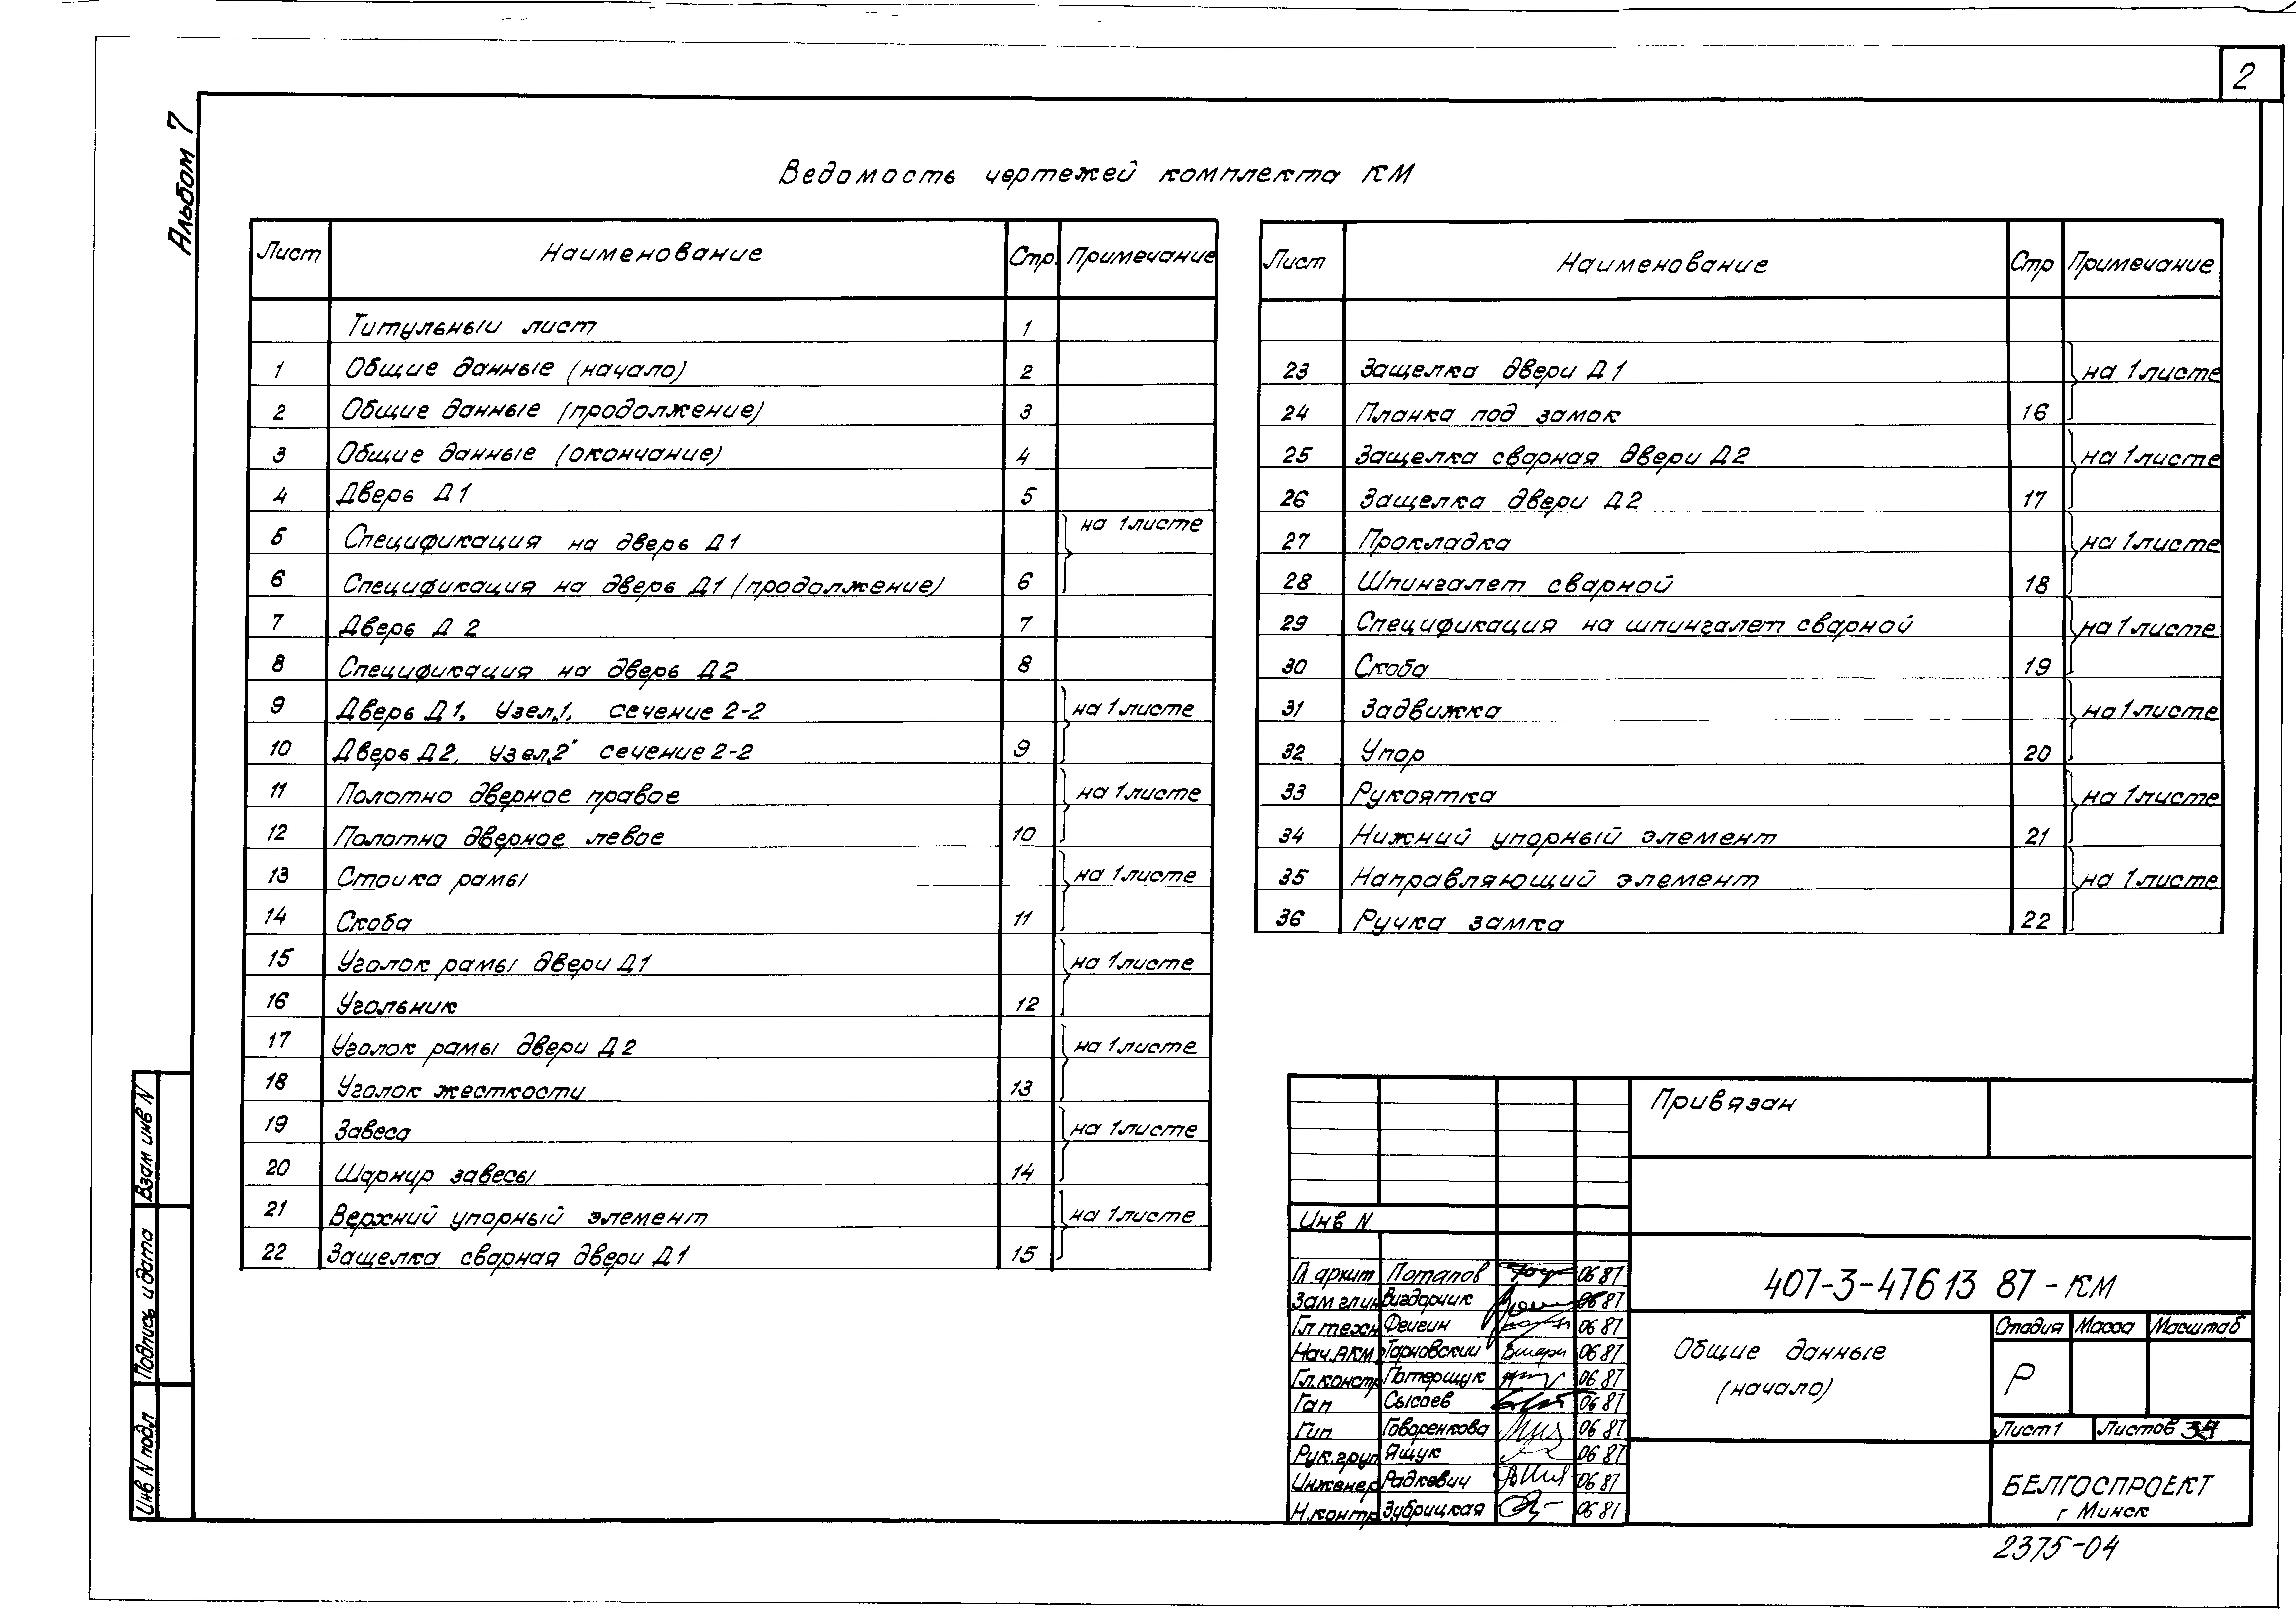 2
Альбом 7
Ведомость чертежей комплекта КМ
Лист Наименование Стр. Примечание
Титульный лист 1
1 Общие данные (начало) 2
2 Общие данные (продолжение) 3
3 Общие данные (окончание) 4
4 Дверь Д1 5
5 Спецификация на дверь Д1 на 1 листе
6 Спецификация на дверь Д1 (продолжение) 6
7 Дверь Д2 7
8 Спецификация на дверь Д2 8
9 Дверь Д1. Узел„1„ сечение 2-2 на 1 листе
10 Дверь Д2. Узел„2" сечение 2-2 9
11 Полотно дверное правое на 1 листе
12 Полотно дверное левое 10
13 Стойка рамы на 1 листе
14 Скоба 11
15 Уголок рамы двери Д1 на 1 листе
16 Угольник 12
17 Уголок рамы двери Д2 на 1 листе
18 Уголок жесткости 13
19 Завеса на 1 листе
20 Шарнир завесы 14
21 Верхний упорный элемент на 1 листе
22 Защелка сварная двери Д1 15
Лист Наименование Стр Примечание
23 Защелка двери Д1 на 1 листе
24 Планка под замок 16
25 Защелка сварная двери Д2 на 1 листе
26 Защелка двери Д2 17
27 Прокладка на 1 листе
28 Шпингалет сварной 18
29 Спецификация на шпингалет сварной на 1 листе
30 Скоба 19
31 Задвижка на 1 листе
32 Упор 20
33 Рукоятка на 1 листе
34 Нижний упорный элемент 21
35 Направляющий элемент на 1 листе
36 Ручка замка 22
Привязан
Инв N
Гл архит Потапов 06 87
Зам глин Вигдорчик 06 87
Гл техн Фейгин 06 87
Нач. АКМ Тарновский 06 87
Гл. констр Потерщук 06 87
Гап Сысоев 06 87
Гип Говоренкова 06 87
Рук. груп Ящук 06 87
Инженер Радкевич 06 87
Н. контр Зубрицкая 06 87
407-3-476 13 87 - КМ
Общие данные
(начало)
Стадия Масса Масштаб
Р
Лист 1 Листов
БЕЛГОСПРОЕКТ
г Минск
2375-04
Взам инв N
Подпись и дата
Инв N подл